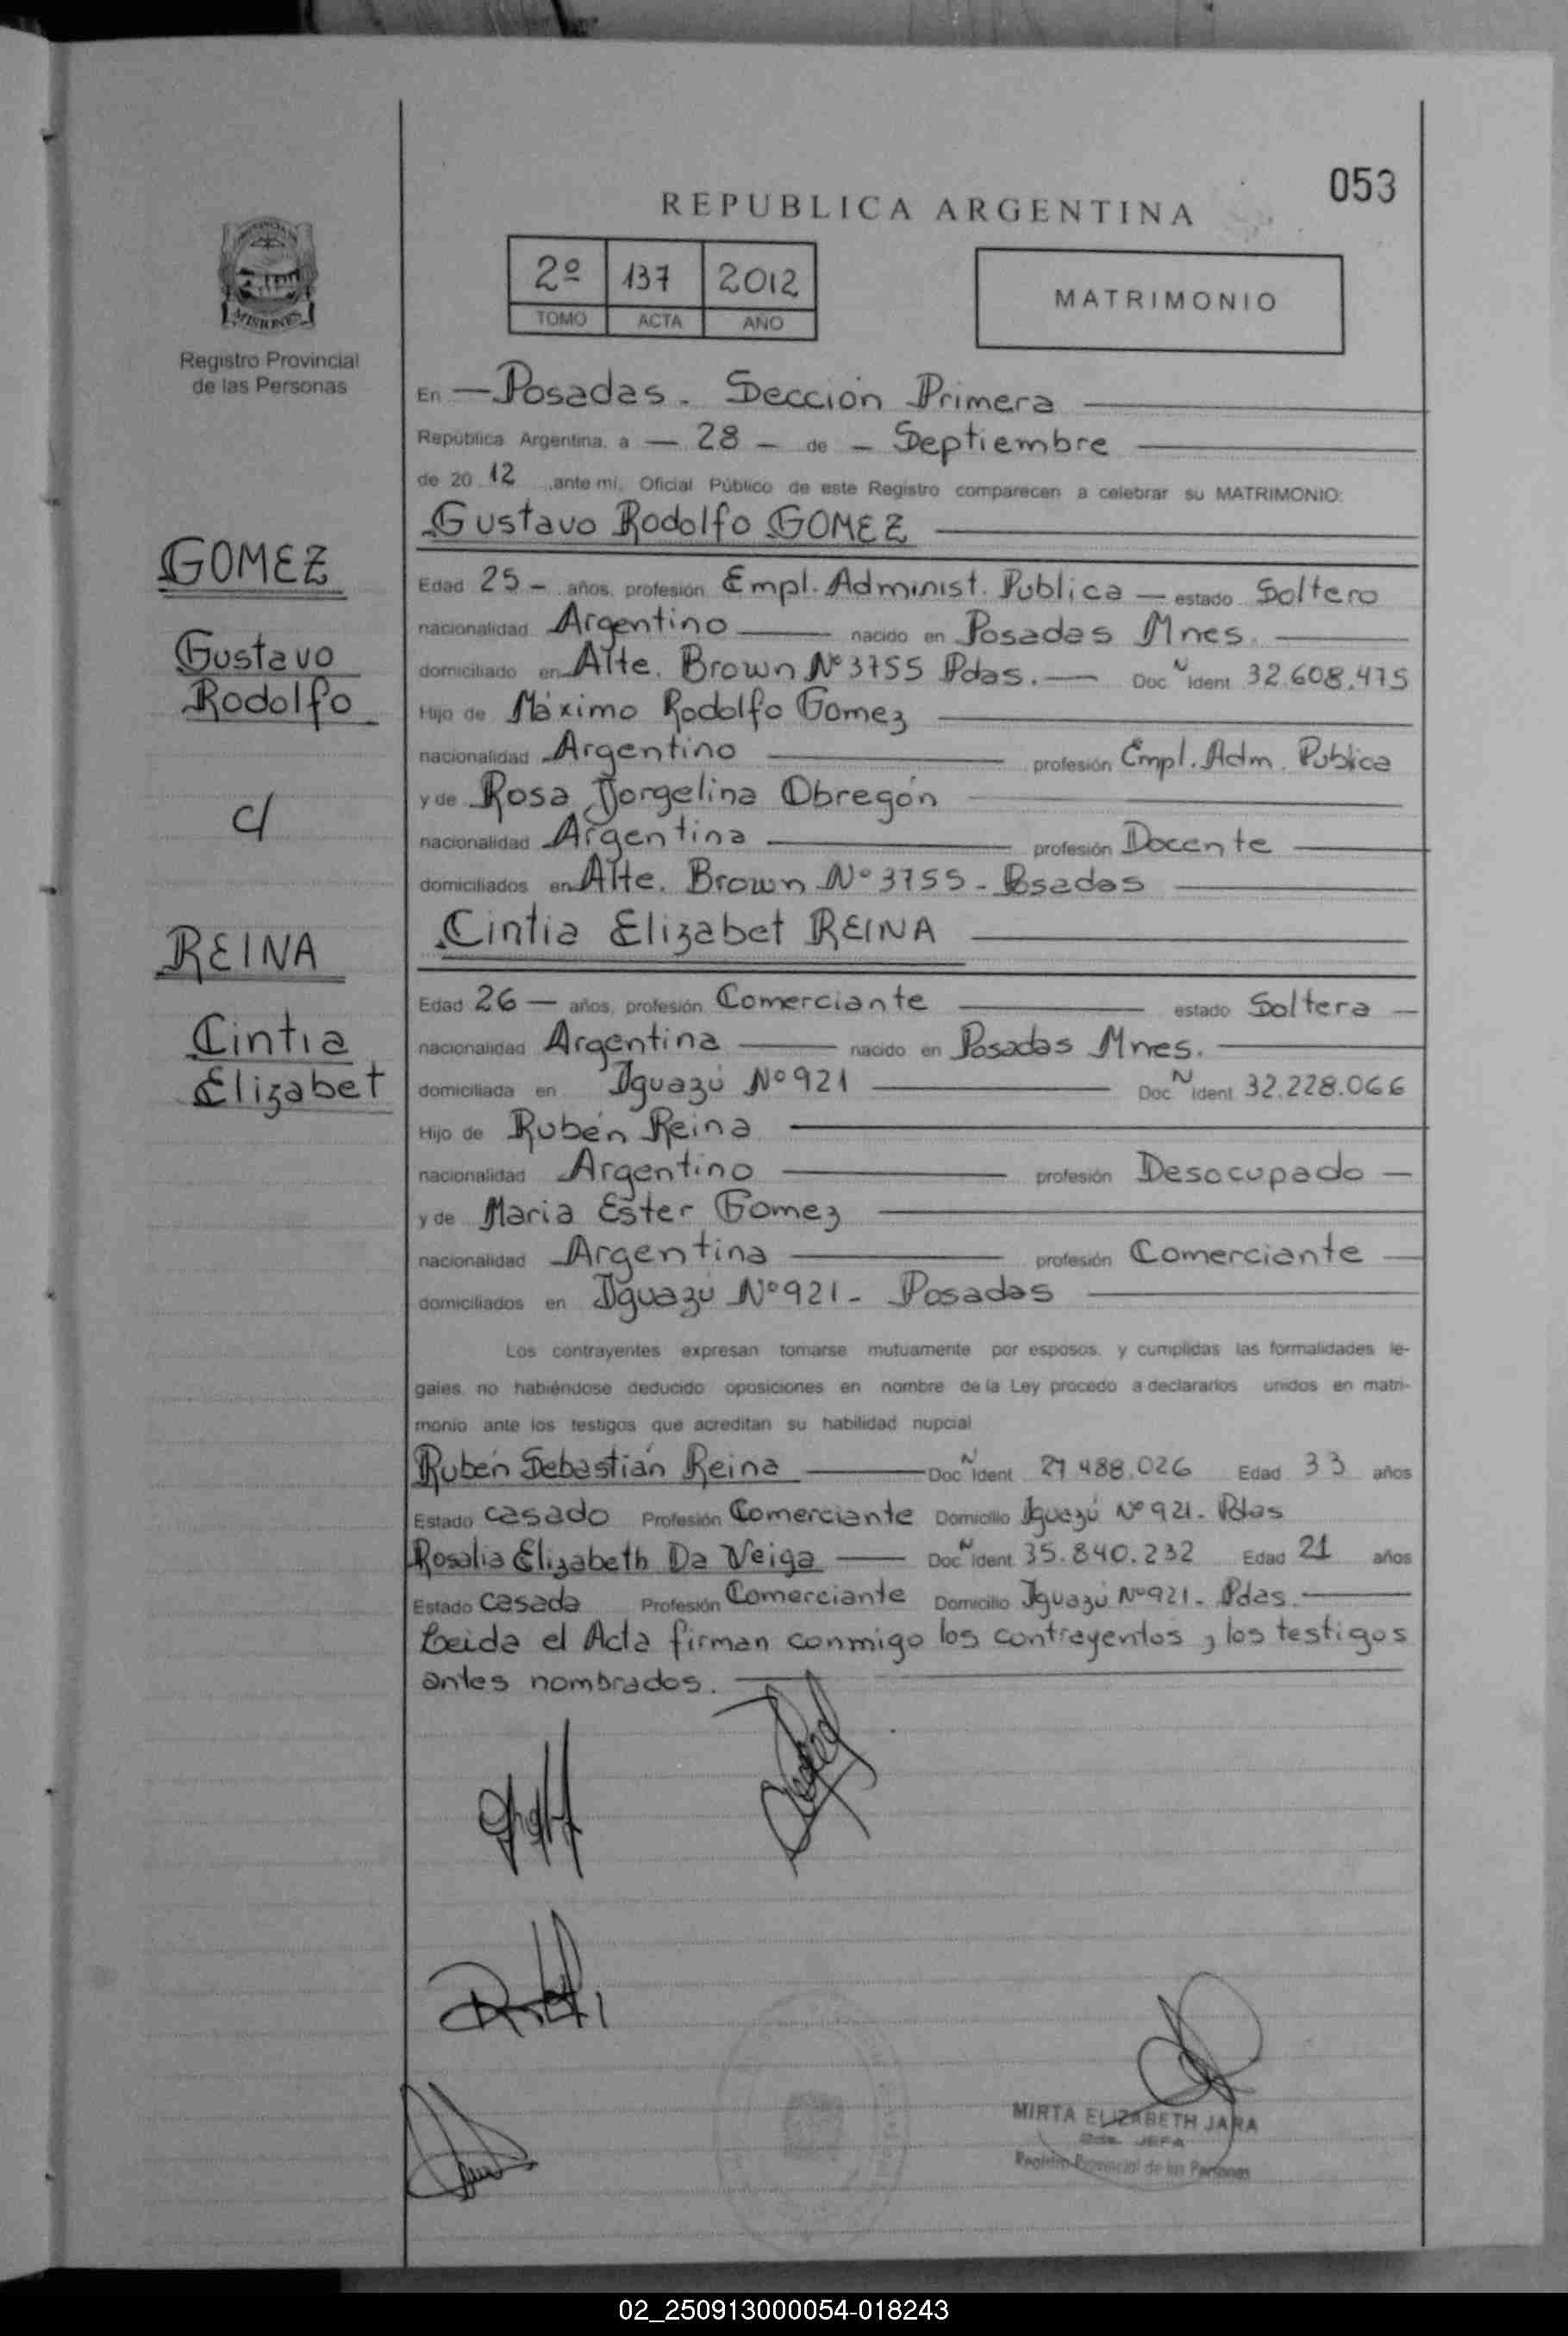 053
REPUBLICA ARGENTINA
2º 137 2012
TOMO ACTA AÑO
MATRIMONIO
MISIONES
Registro Provincial
de las Personas
En — Posadas. Sección Primera
República Argentina, a — 28 — de — Septiembre
de 20 12 ,ante mi, Oficial Público de este Registro comparecen a celebrar su MATRIMONIO:
Gustavo Rodolfo GOMEZ
GOMEZ
Gustavo
Rodolfo
c/
REINA
Cintia
Elizabet
Edad 25 – años, profesión Empl. Administ. Publica — estado Soltero
nacionalidad Argentino — nacido en Posadas Mnes.
domiciliado en Alte. Brown Nº 3755 Pdas. — Doc N Ident 32.608.475
Hijo de Máximo Rodolfo Gomez
nacionalidad Argentino — profesión Empl. Adm. Publica
y de Rosa Jorgelina Obregón
nacionalidad Argentina — profesión Docente
domiciliados en Alte. Brown Nº 3755 - Posadas
Cintia Elizabet REINA
Edad 26 — años, profesión Comerciante — estado Soltera —
nacionalidad Argentina — nacido en Posadas Mnes.
domiciliada en Iguazú Nº 921 — Doc N Ident 32.228.066
Hijo de Rubén Reina
nacionalidad Argentino — profesión Desocupado —
y de Maria Ester Gomez
nacionalidad Argentina — profesión Comerciante —
domiciliados en Iguazú Nº 921 - Posadas
Los contrayentes expresan tomarse mutuamente por esposos, y cumplidas las formalidades le-
gales, no habiéndose deducido oposiciones en nombre de la Ley procedo a declararlos unidos en matri-
monio ante los testigos que acreditan su habilidad nupcial
Rubén Sebastián Reina — Doc N Ident 27.488.026 Edad 33 años
Estado casado Profesión Comerciante Domicilio Iguazú Nº 921. Pdas
Rosalia Elizabeth Da Veiga — Doc N Ident 35.840.232 Edad 21 años
Estado Casada Profesión Comerciante Domicilio Iguazú Nº 921 - Pdas.
Leida el Acta firman conmigo los contrayentes, los testigos
antes nombrados.
MIRTA ELIZABETH JARA
JEFA
Registro Provincial de las Personas
02_250913000054-018243